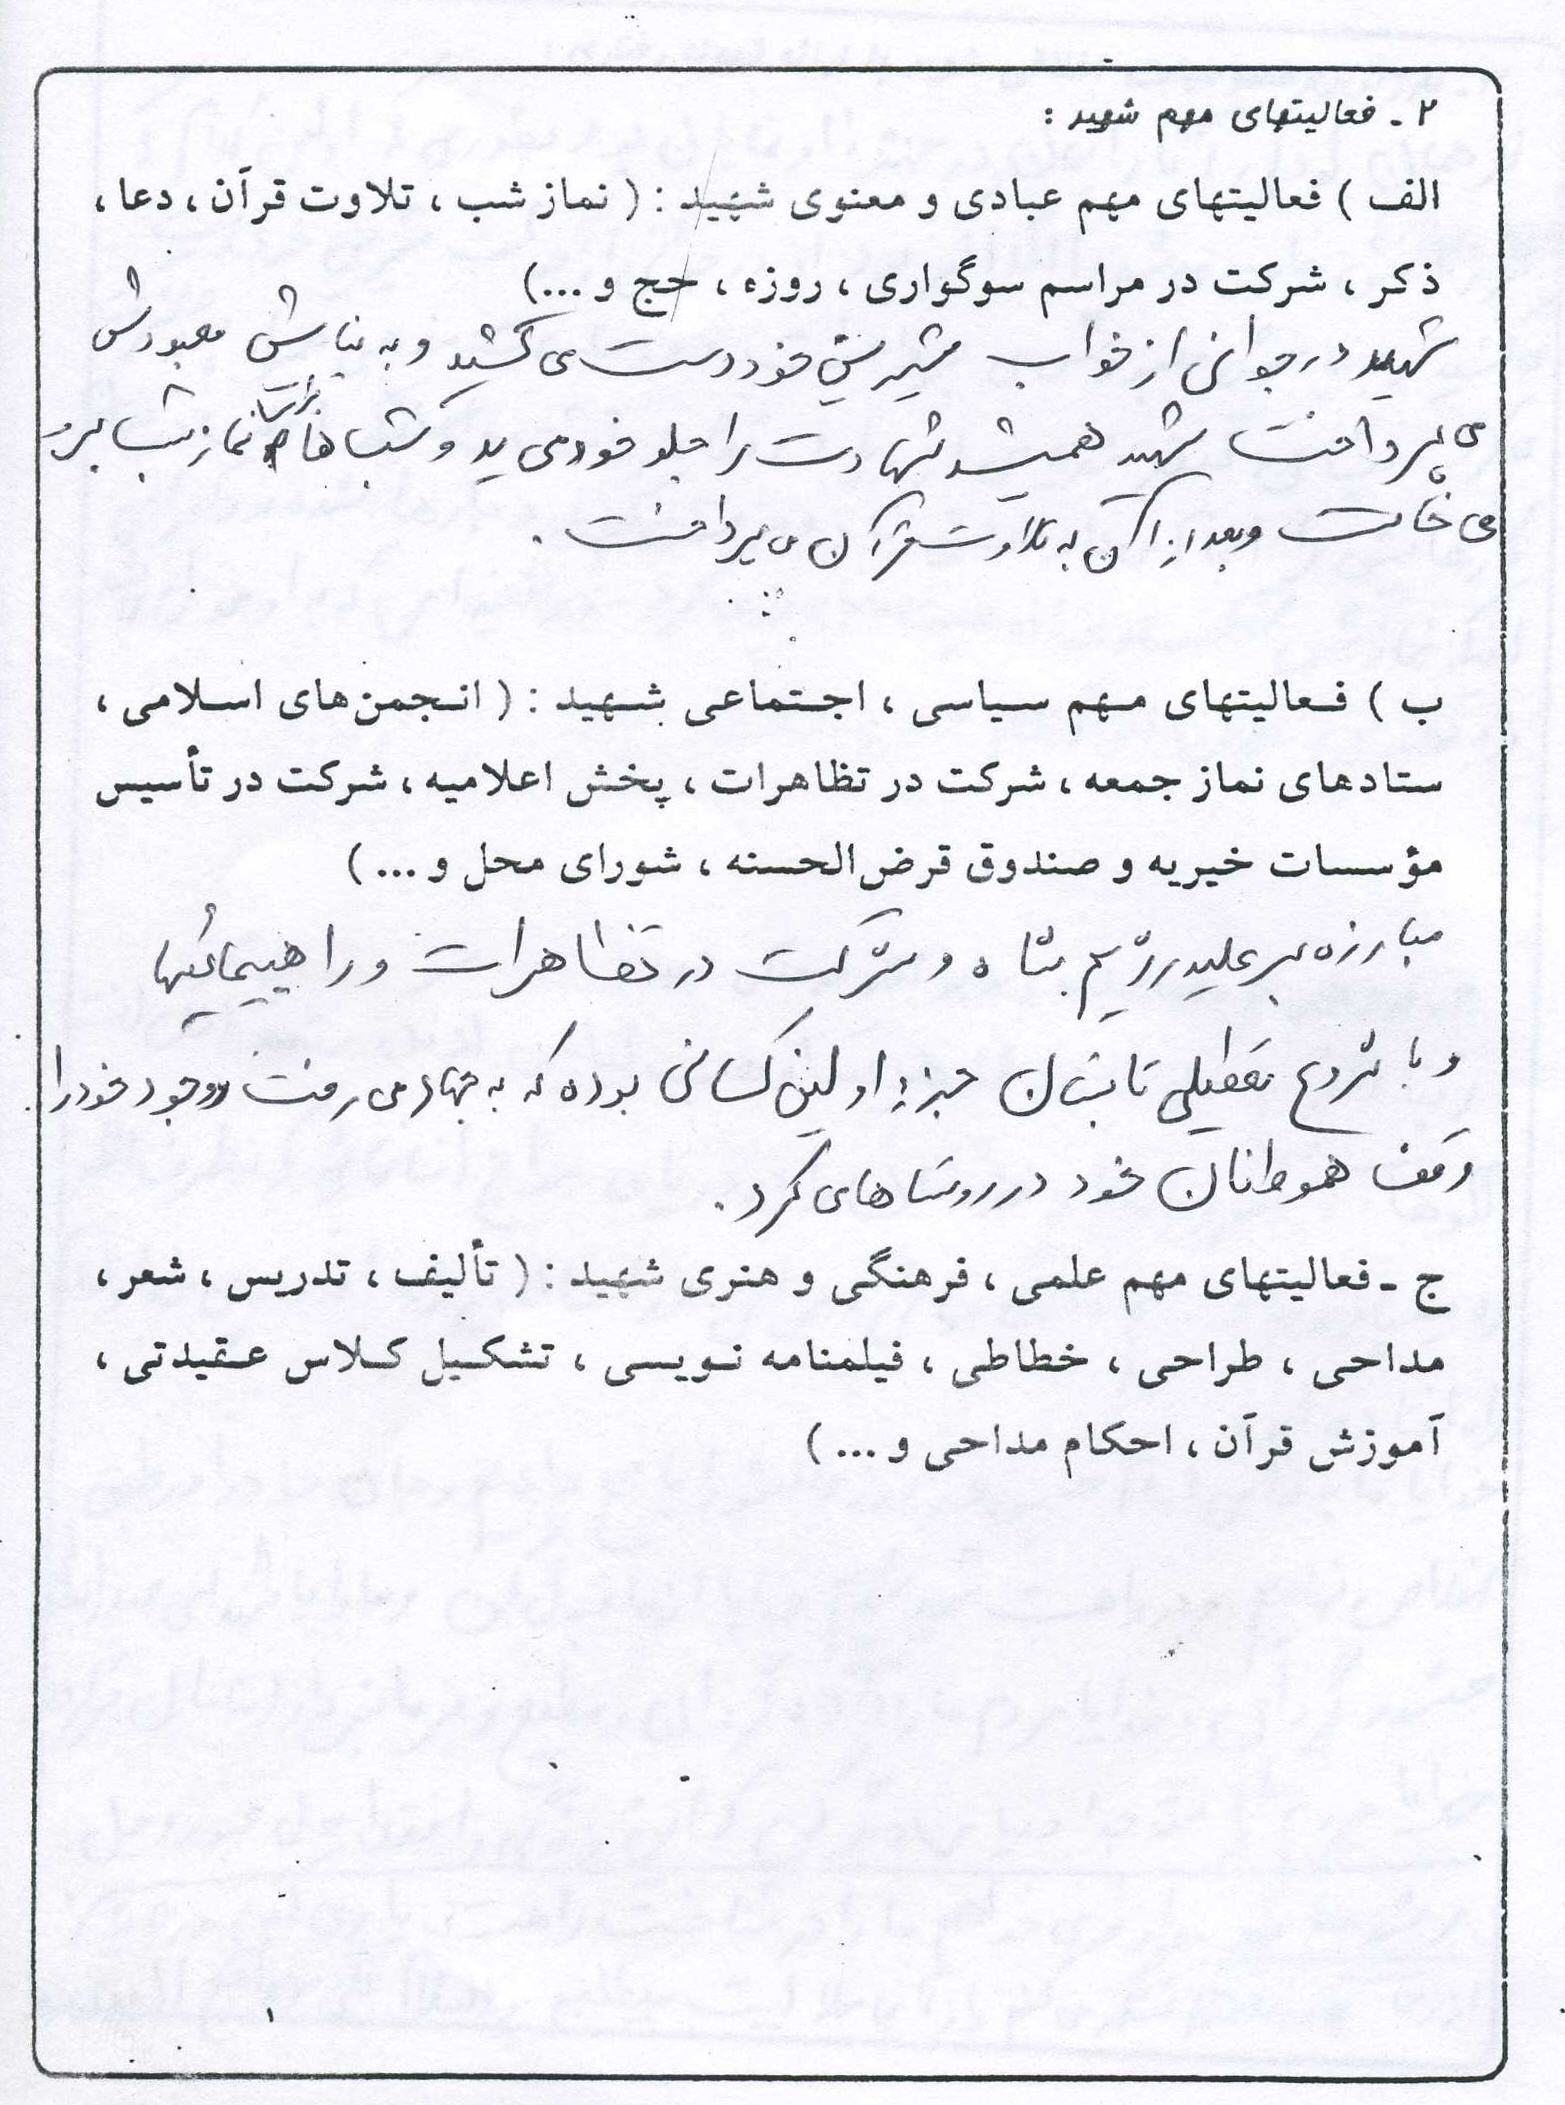 ۲ ـ فعالیتهای مهم شهید :
الف ) فعالیتهای مهم عبادی و معنوی شهید : ( نماز شب ، تلاوت قرآن ، دعا ،
ذکر ، شرکت در مراسم سوگواری ، روزه ، حج و ...)
شهید در جوانی از خواب شیرین خود دست می کشید و به نیایش معبودش
می پرداخت شهید همیشه شهادت را جلو خود می دید و شبها برای نماز شب بر
می خاست و بعد از آن به تلاوت قرآن می پرداخت .
ب ) فعالیتهای مهم سیاسی ، اجتماعی شهید : ( انجمن‌های اسلامی ،
ستادهای نماز جمعه ، شرکت در تظاهرات ، پخش اعلامیه ، شرکت در تأسیس
مؤسسات خیریه و صندوق قرض‌الحسنه ، شورای محل و ... )
مبارزه بر علیه رژیم شاه و شرکت در تظاهرات و راهپیمائیها
و با شروع تعطیلی تابستان جزء اولین کسانی بوده که به جهاد می رفت و وجود خود را
وقف هموطنان خود در روستاهای کرد .
ج ـ فعالیتهای مهم علمی ، فرهنگی و هنری شهید : ( تألیف ، تدریس ، شعر ،
مداحی ، طراحی ، خطاطی ، فیلمنامه نویسی ، تشکیل کلاس عقیدتی ،
آموزش قرآن ، احکام مداحی و ... )